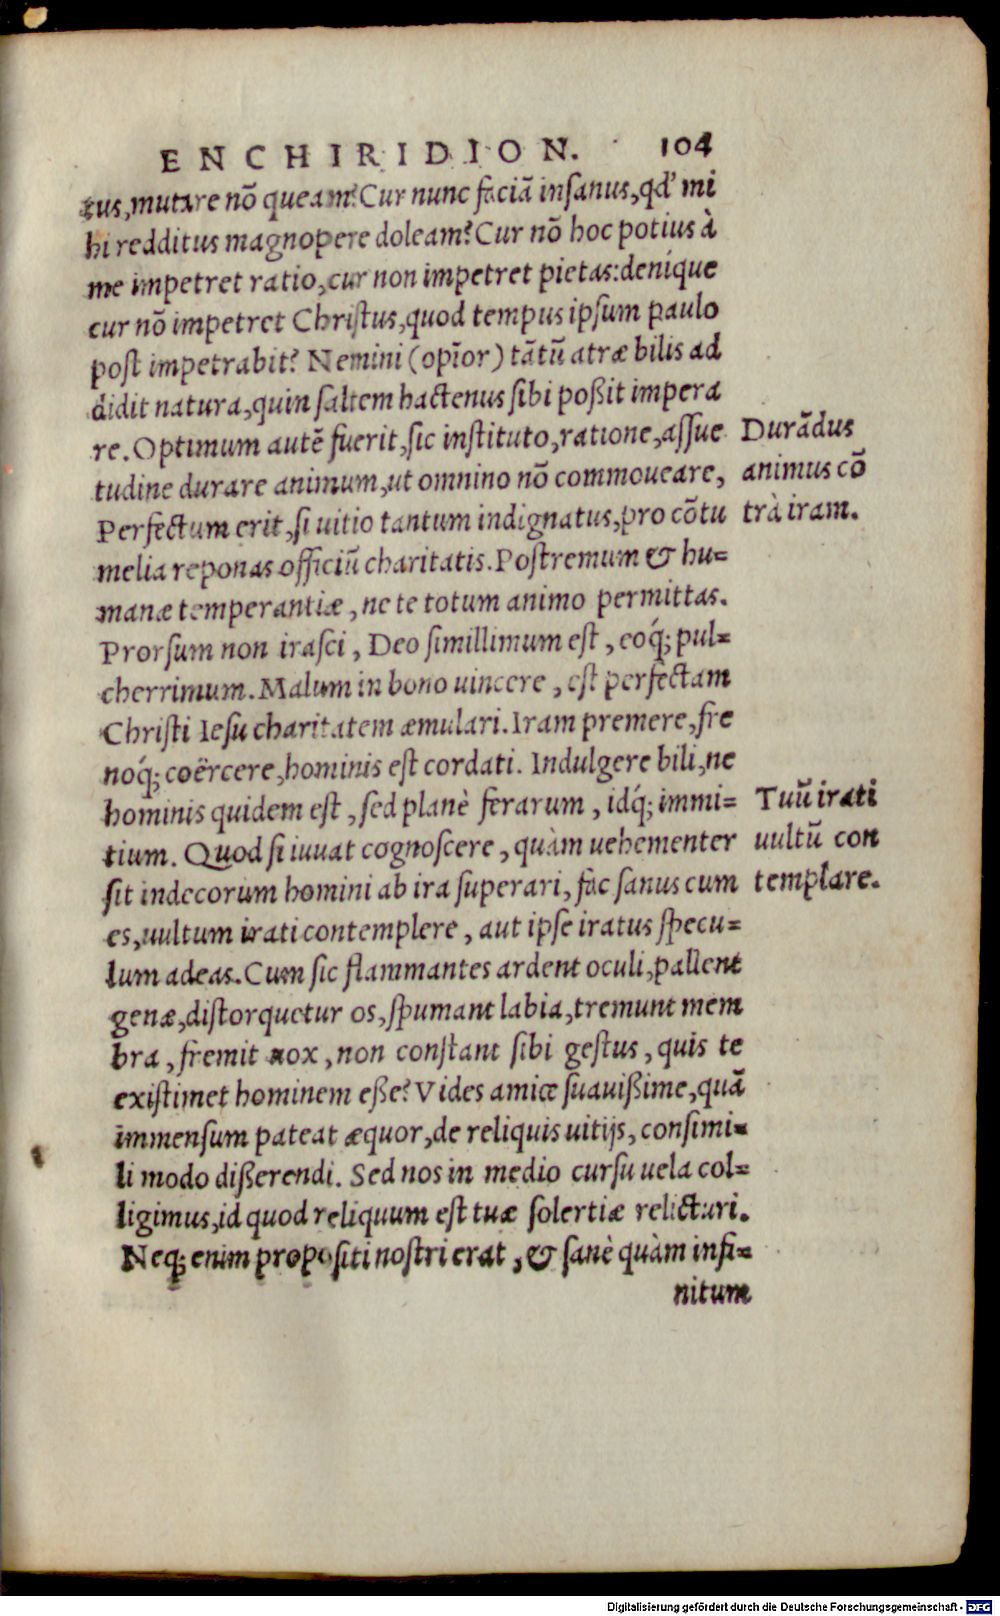 ENCHIRIDION. 104
tus, mutare nō queam? Cur nunc faciā insanus, qđ mi
hi redditus magnopere doleam? Cur nō hoc potius à
me impetret ratio, cur non impetret pietas: denique
cur nō impetret Christus, quod tempus ipsum paulo
post impetrabit? Nemini (opīor) tātū atræ bilis ad
didit natura, quin saltem hactenus sibi poßit impera
re. Optimum autē fuerit, sic instituto, ratione, assue
tudine durare animum, ut omnino nō commoueare,
Perfectum erit, si uitio tantum indignatus, pro cōtu
melia reponas officiū charitatis. Postremum & hu=
manæ temperantiæ, ne te totum animo permittas.
Prorsum non irasci, Deo simillimum est, eoq́; pul=
cherrimum. Malum in bono uincere, est perfectam
Christi Iesu charitatem æmulari. Iram premere, fre
noq́; coërcere, hominis est cordati. Indulgere bili, ne
hominis quidem est, sed planè ferarum, idq́; immi=
tium. Quod si iuuat cognoscere, quàm uehementer
sit indecorum homini ab ira superari, fac sanus cum
es, uultum irati contemplere, aut ipse iratus specu=
lum adeas. Cum sic flammantes ardent oculi, pallent
genæ, distorquetur os, spumant labia, tremunt mem
bra, fremit uox, non constant sibi gestus, quis te
existimet hominem eße? Vides amice suauißime, quā
immensum pateat æquor, de reliquis uitijs, consimi=
li modo dißerendi. Sed nos in medio cursu uela col=
ligimus, id quod reliquum est tuæ solertiæ relicturi.
Neq; enim propositi nostri erat, & sanè quàm infi=
nitum
Durādus
animus cō
trà iram.
Tuū irati
uultū con
templare.
Digitalisierung gefördert durch die Deutsche Forschungsgemeinschaft - DFG